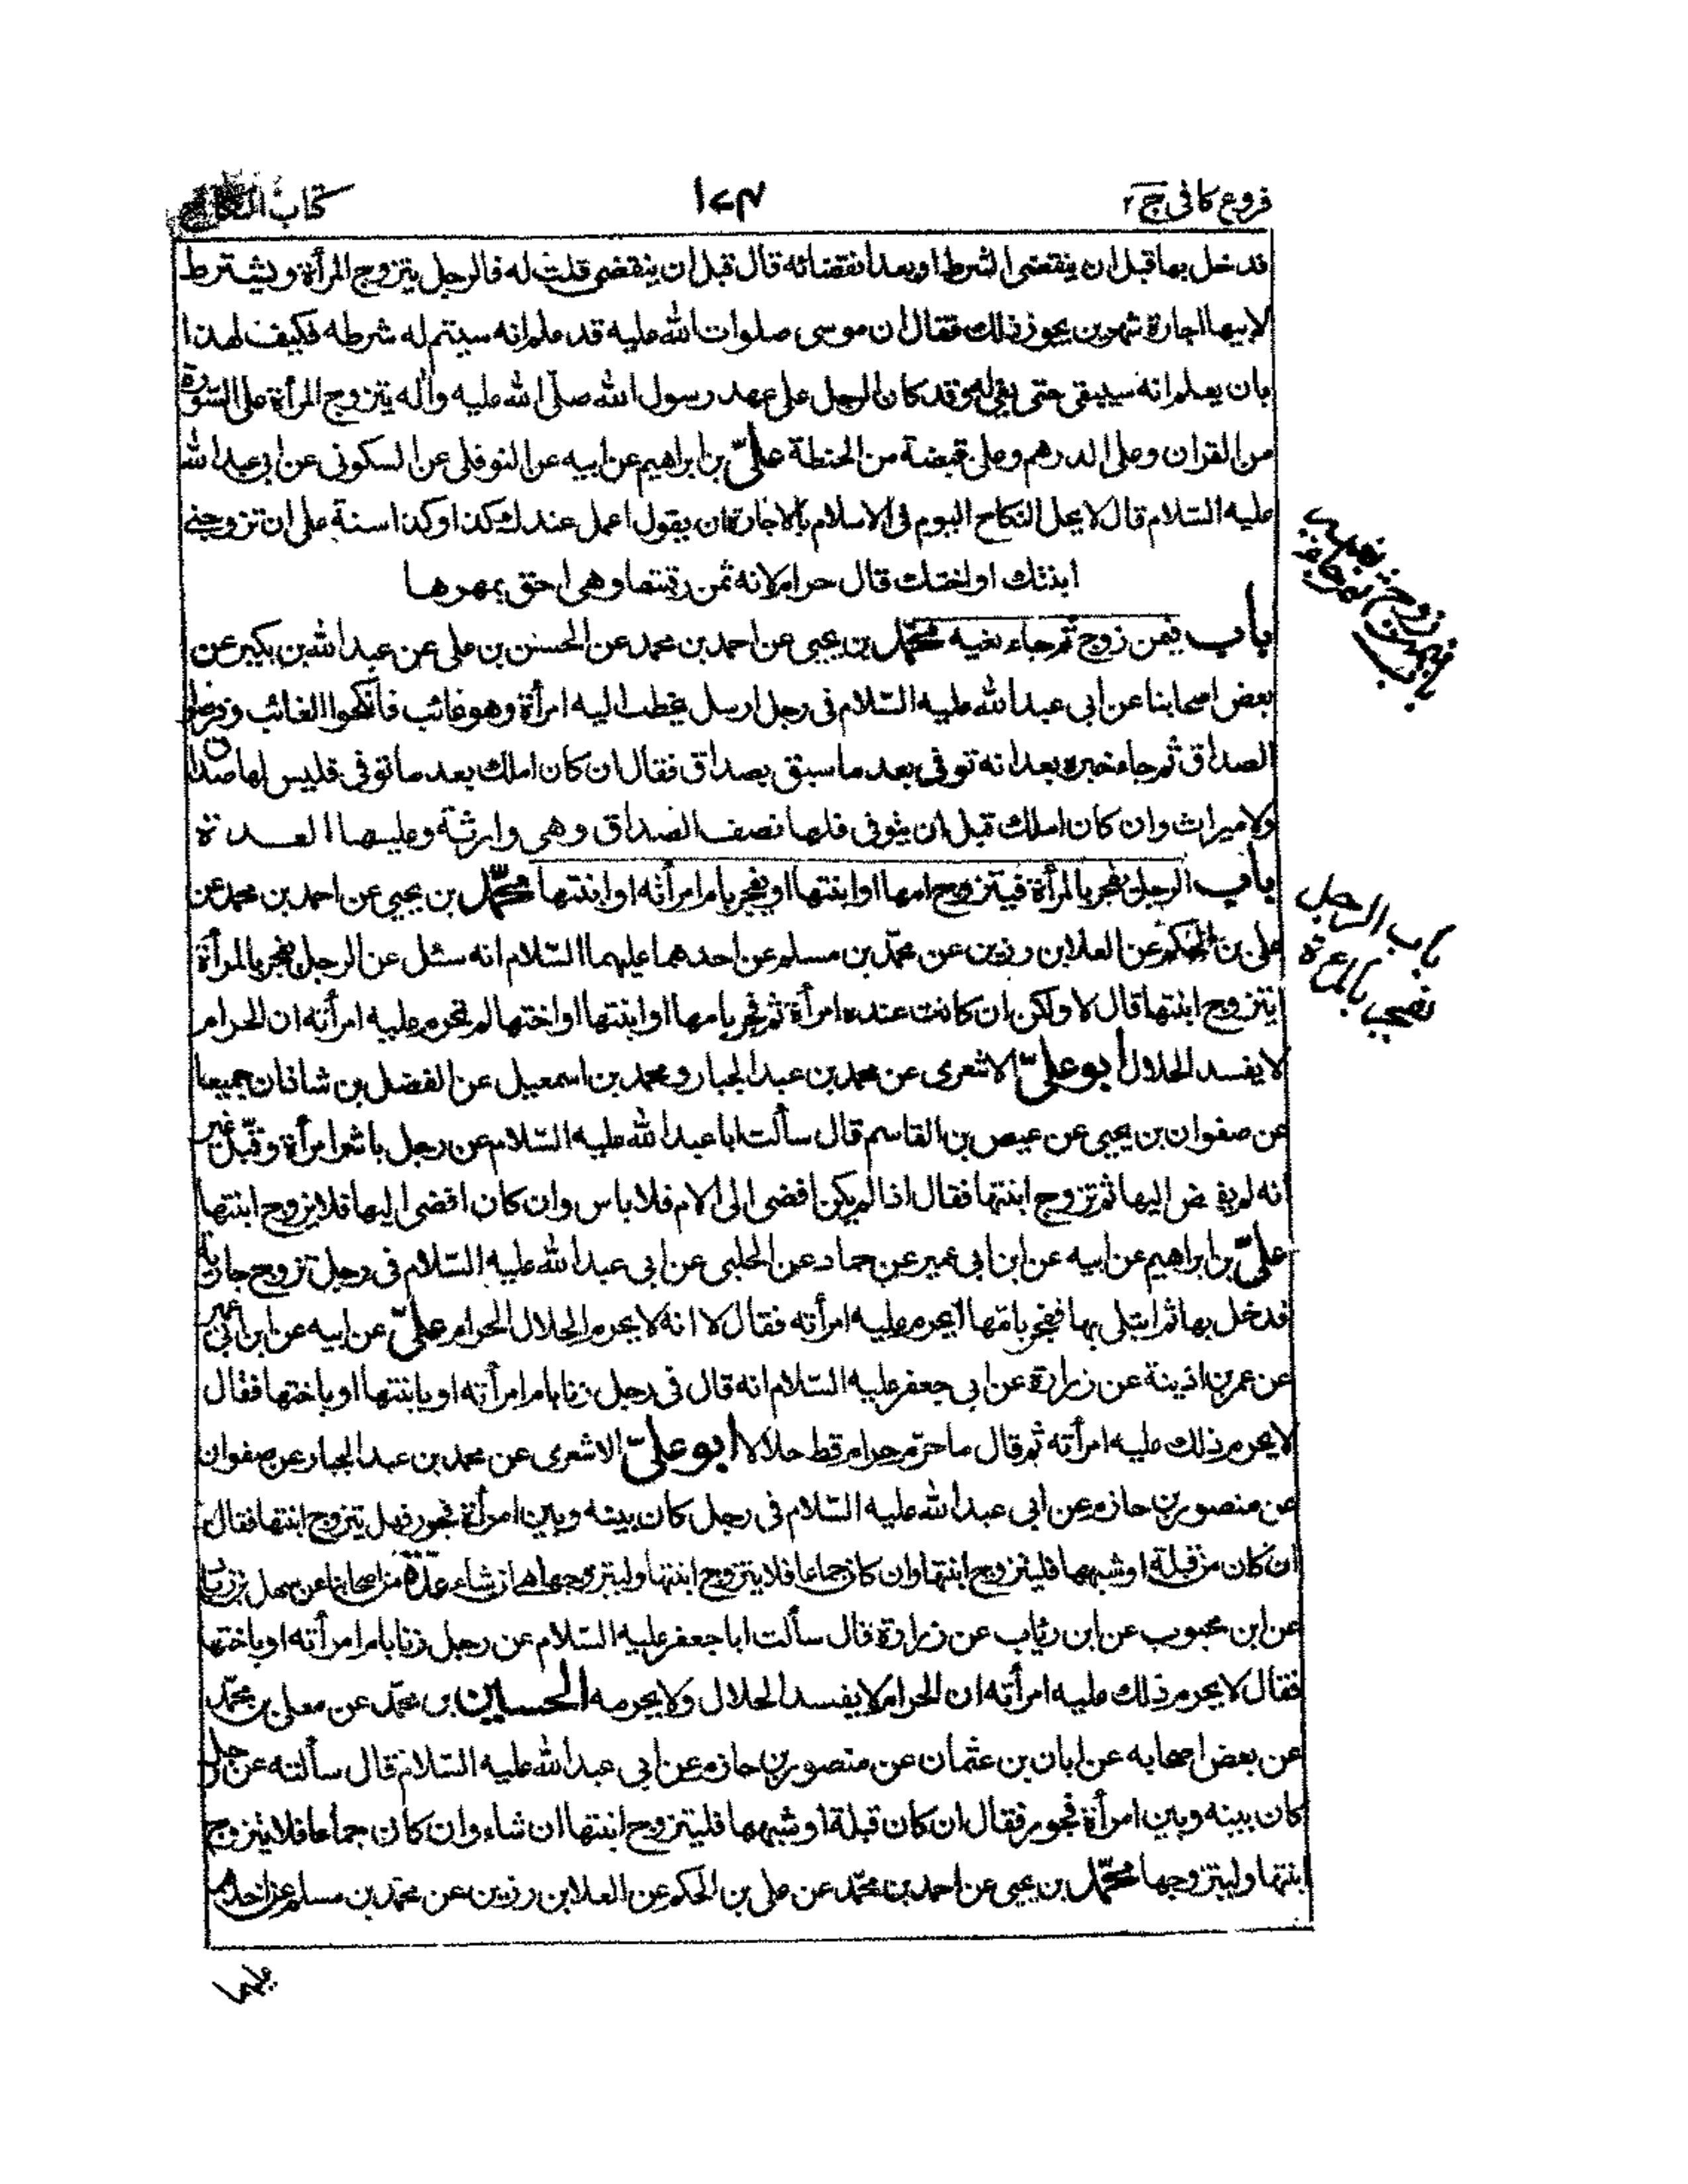 فروع كافى ج ٢
١٧٤
كتاب النكاح
فدخل بها قبل ان ينقضى الشرط او بعد انقضائه قال قبل ان ينقضى قلت له فالرجل يتزوج المرأة ويشترط
لابيها اجارة شهرين يجوز ذلك فقال ان موسى صلوات الله عليه قد علم انه سيتم له شرطه فكيف لهذا
بان يعلم انه سيبقى حتى يفى له وقد كان الرجل على عهد رسول الله صلّى الله عليه وآله يتزوج المرأة على السّورة
من القران وعلى الدرهم وعلى قبضة من الحنطة علىّ بن ابراهيم عن ابيه عن النوفلى عن السكونى عن ابى عبد الله
عليه السّلام قال لا يحل النكاح اليوم فى الاسلام بالاجارة ان يقول اعمل عندك كذا وكذا سنة على ان تزوجنى
ابنتك او اختك قال حرام لانه ثمن رقبتها وهى احق بمهرها
باب فيمن زوج ثم جاء نعيه محمّد بن يحيى عن احمد بن محمد عن الحسن بن على عن عبد الله بن بكير عن
بعض اصحابنا عن ابى عبد الله عليه السّلام فى رجل ارسل يخطب اليه امرأة وهو غائب فانكحوا الغائب وفرضوا
الصداق ثم جاء خبره بعد انه توفى بعد ما سبق بصداق فقال ان كان املك بعد ما توفى فليس لها صداق
ولا ميراث وان كان املك قبل ان يتوفى فلها نصف الصداق وهى وارثة وعليها العدة
باب الرجل يفجر بالمرأة فيتزوج امها او ابنتها او يفجر بام امرأته او ابنتها محمّد بن يحيى عن احمد بن محمد عن
على بن الحكم عن العلا بن رزين عن محمّد بن مسلم عن احدهما عليهما السّلام انه سئل عن الرجل يفجر بالمرأة
ايتزوج ابنتها قال لا ولكن ان كانت عنده امرأة ثم فجر بامها او ابنتها او اختها لم تحرم عليه امرأته ان الحرام
لا يفسد الحلال ابو علىّ الاشعرى عن محمد بن عبد الجبار ومحمد بن اسمعيل عن الفضل بن شاذان جميعا
عن صفوان بن يحيى عن عيص بن القاسم قال سألت ابا عبد الله عليه السّلام عن رجل باشر امرأة وقبّل غير
انه لم يفض اليها ثم تزوج ابنتها فقال اذا لم يكن افضى الى الام فلا باس وان كان افضى اليها فلا يزوج ابنتها
علىّ بن ابراهيم عن ابيه عن ابن ابى عمير عن حماد عن الحلبى عن ابى عبد الله عليه السّلام فى رجل تزوج جارية
فدخل بها ثم ابتلى بها ففجر بامّها ايحرم عليه امرأته فقال لا انه لا يحرم الحلال الحرام علىّ عن ابيه عن ابن ابى عمير
عن عمر بن اذينة عن زرارة عن ابى جعفر عليه السّلام انه قال فى رجل زنا بام امرأته او بابنتها او باختها فقال
لا يحرم ذلك عليه امرأته ثم قال ما حرّم حرام قط حلالا ابو علىّ الاشعرى عن محمد بن عبد الجبار عن صفوان
عن منصور بن حازم عن ابى عبد الله عليه السّلام فى رجل كان بينه وبين امرأة فجور فهل يتزوج ابنتها فقال
ان كان من قبلة او شبهها فليتزوج ابنتها وان كان جماعا فلا يتزوج ابنتها وليتزوجها هى ان شاء عدّة من اصحابنا عن سهل بن زياد
عن ابن محبوب عن ابن رئاب عن زرارة قال سألت ابا جعفر عليه السّلام عن رجل زنا بام امرأته او باختها
فقال لا يحرم ذلك عليه امرأته ان الحرام لا يفسد الحلال ولا يحرمه الحسين بن محمّد عن معلى بن محمّد
عن بعض اصحابه عن ابان بن عثمان عن منصور بن حازم عن ابى عبد الله عليه السّلام قال سألته عن رجل
كان بينه وبين امرأة فجور فقال ان كان قبلة او شبهها فليتزوج ابنتها ان شاء وان كان جماعا فلا يتزوج
ابنتها وليتزوجها محمّد بن يحيى عن احمد بن محمّد عن على بن الحكم عن العلا بن رزين عن محمّد بن مسلم عن احدهما
عليهما
باب فيمن زوج ثم جاء نعيه
باب الرجل
يفجر بالمرأة